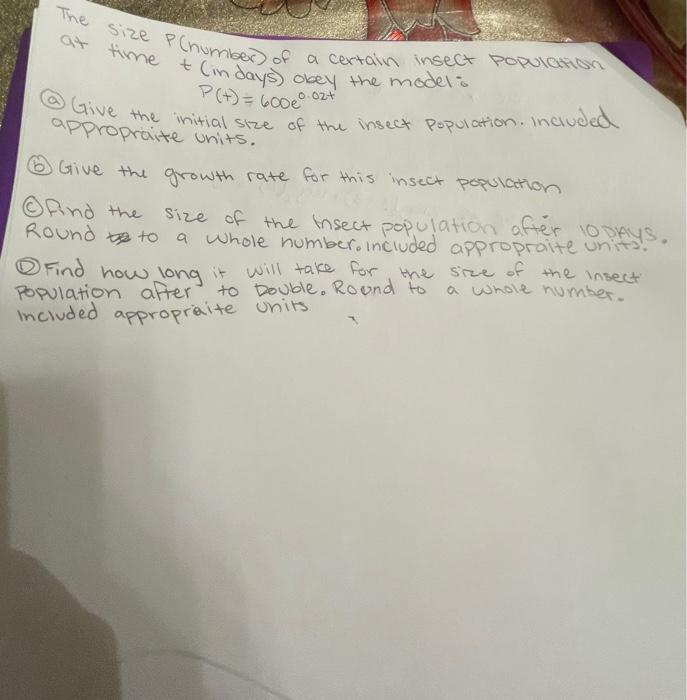 The size P(number) of a certain insect population
at time t (in days) obey the model:
P(t) = 600e^0.02t
ⓐ Give the initial size of the insect population. Included
appropraite units.
ⓑ Give the growth rate for this insect population
ⓒ Find the size of the insect population after 10 DAYS.
Round to a whole number. included appropraite units.
Ⓓ Find how long it will take for the size of the insect
Population after to Double. Round to a whole number.
included appropraite units